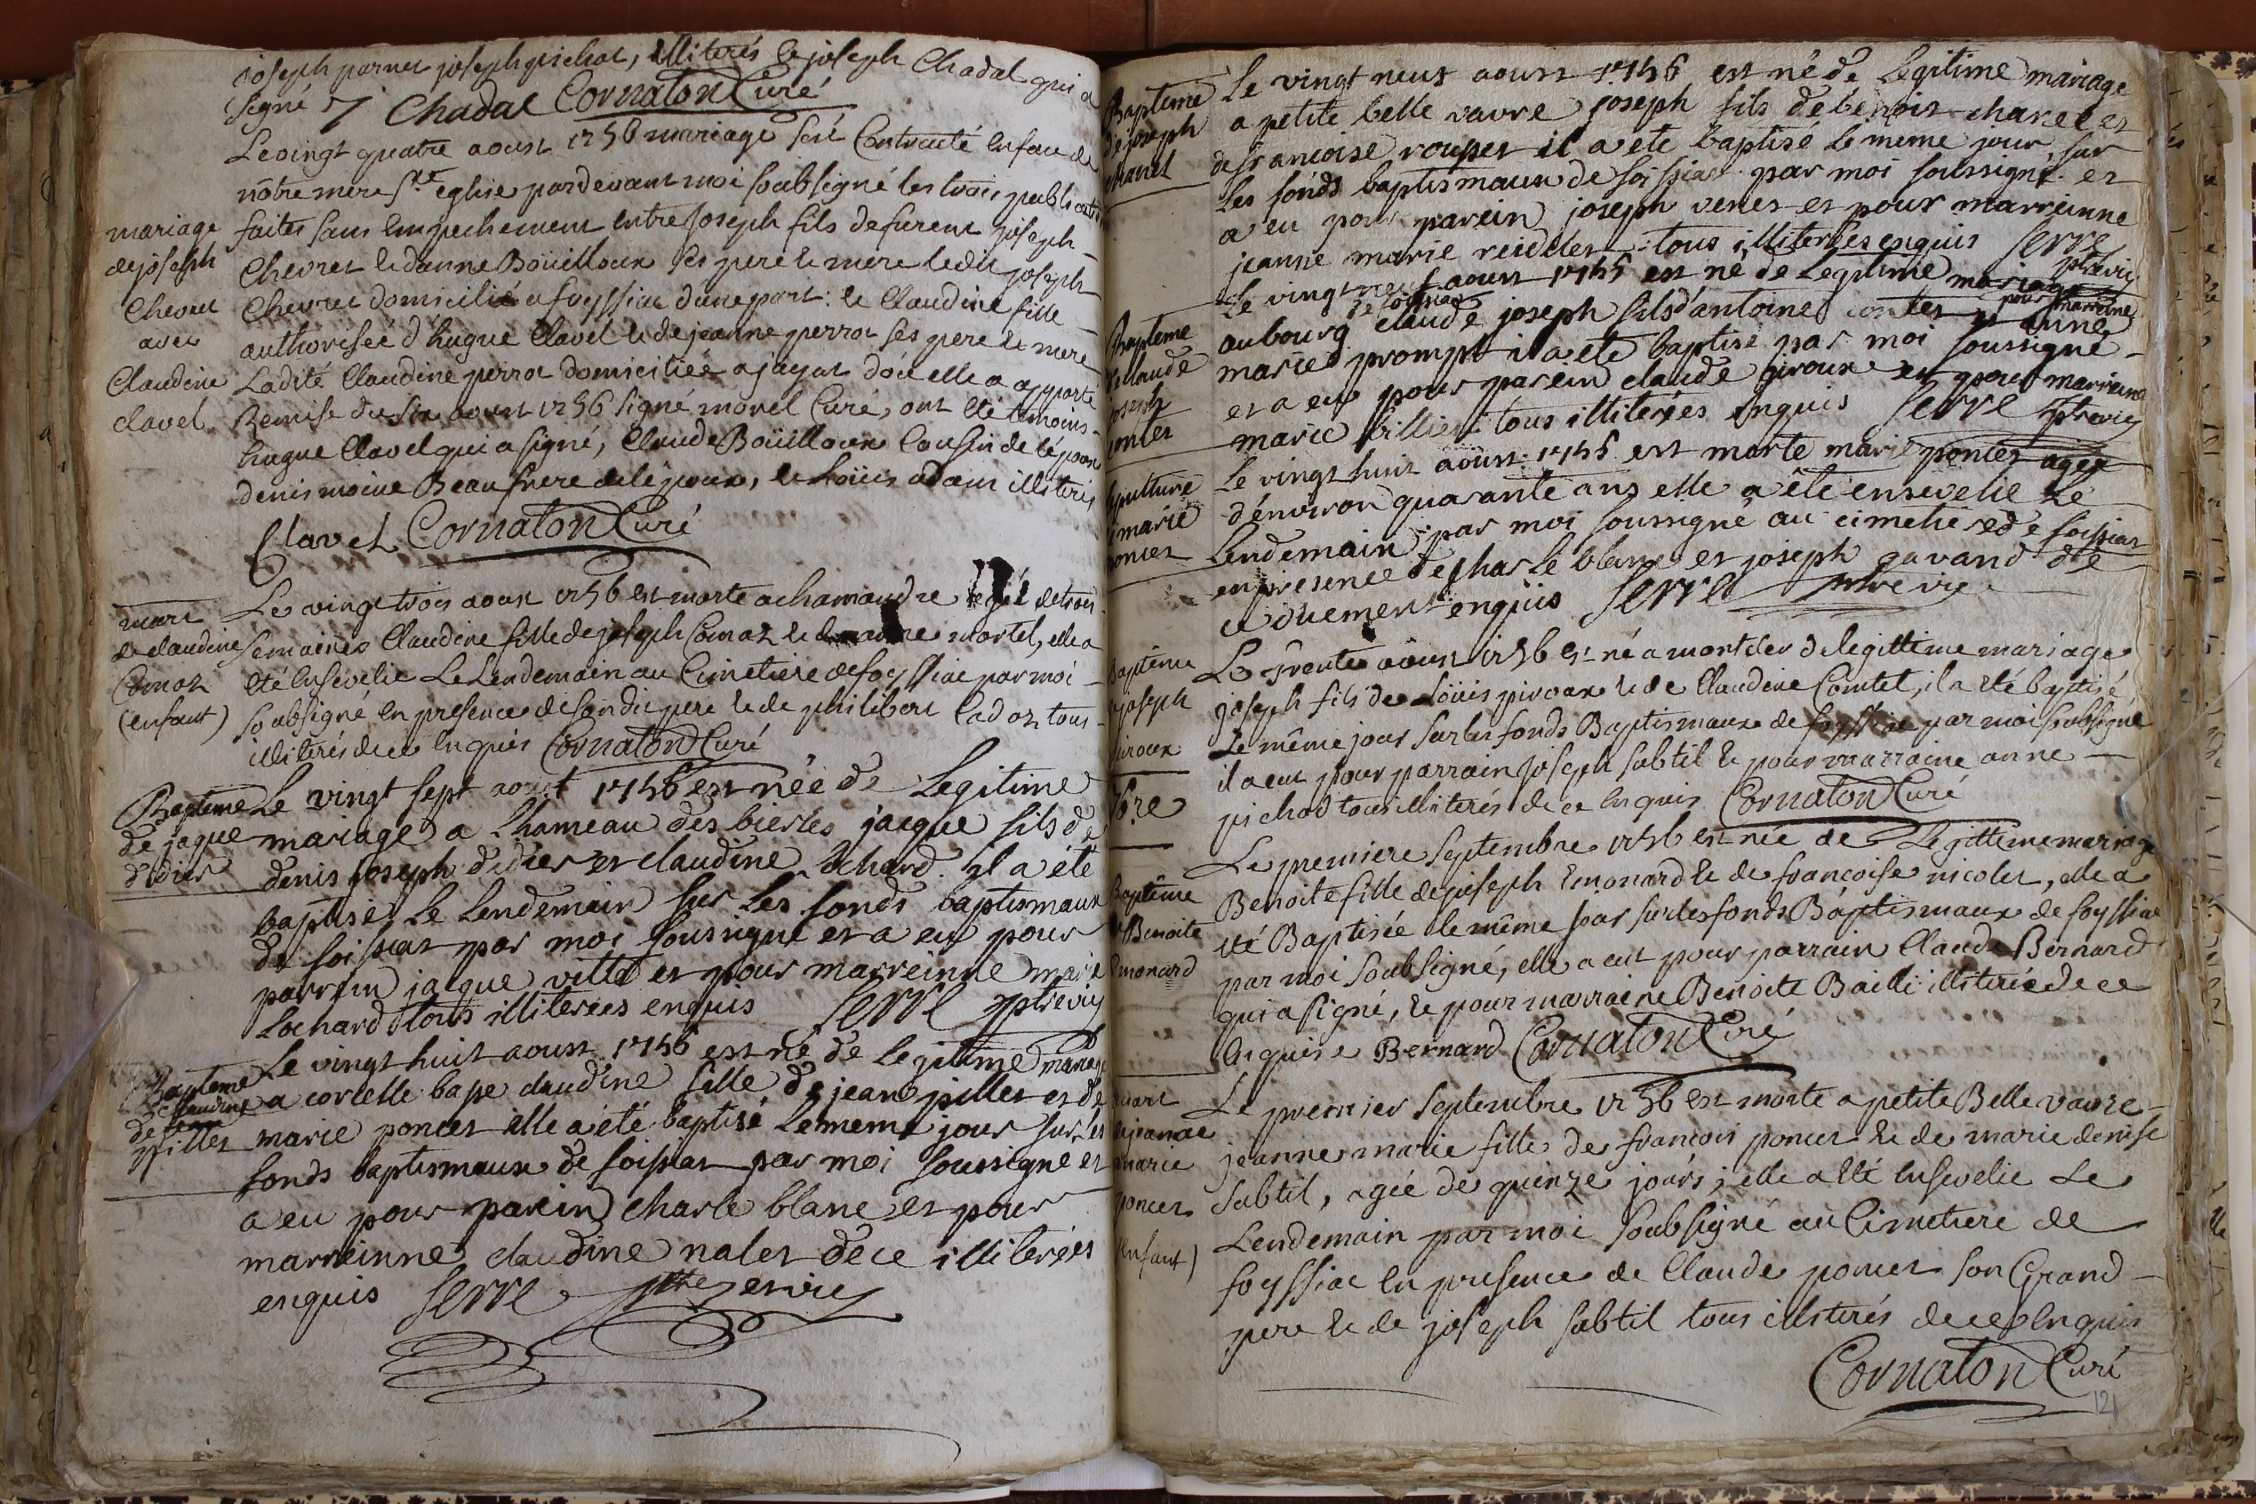 joseph parnet joseph pichat, illiterés le joseph Chadal qui a
signé J Chadal Cornaton Curé
Le vingt quatre aoust 1756 mariage fut Contracté en face de
nôtre mere Ste eglise pardevant moi soubsigné les trois publications
mariage
de joseph
Chevret
avec
Claudine
clavel
faites sans empechement entre joseph fils de furent joseph
Chevret et danne Boüilloux ses pere et mere ledit joseph
Chevret domicilié a foyssiac dune part: et Claudine fille
authorisée d'hugue Clavel et de jeanne perrot ses pere et mere
Ladite Claudine perrot domiciliée a jayat d'où elle a apporté
Remise du six aoust 1756 signé morel Curé, ont été temoins
hugue Clavel qui a signé, Claude Boüilloux Cousin de lépoux
denis moine Beaufrere de lépoux, et Loüis adam illiterés
Clavel Cornaton Curé
mort
de claudine
Comaz
(enfant)
Le vingt trois aoust 1756 est morte a chamandre agée de trois
semaines Claudine fille de joseph Comaz et de mortel, elle a
été Ensevelie Le Lendemain au Cimetiere de foyssiac par moi
soubsigné en presence de son dit pere et de philibert Cadoz tous
illiterés de ce Enquis Cornaton Curé
Bapteme
de jaque
didier
Le vingt sept aoust 1756 est née de Legitime
mariage a Lhameau des bierles jacque fils de
denis joseph didier et claudine Lochard. il a été
baptisé Le Lendemain sur Les fonds baptismaux
de foissiat par moi soussigné et a eu pour
parrein jacque villet et pour marreinne marie
Lochard tous illiterées enquis Serre ptrevic
Bapteme
de claudine
de jean
pillet
Le vingt huit aoust 1756 est né de legitime mariage
a corcelle basse claudine fille de jean pillet et de
marie poncet elle a été baptisé Le meme jour sur les
fonds baptismaux de foissiat par moi soussigné et
a eu pour parein charle blanc et pour
marreinne claudine nalet de ce illiterées
enquis Serre ptre vic
Bapteme
de joseph
chanel
Le vingt neuf aoust 1756 est né de Legitime mariage
a petite belle vavre joseph fils de benoit chanel et
de francoise roupet il a ete baptisé Le meme jour sur
Les fonds baptismaux de foissiat par moi soussigné et
a eu pour parein joseph venet et pour marreinne
jeanne marie reidellet tous illiterées enquis Serre
ptrevic
Bapteme
de claude
joseph
contet
Le vingt neuf aoust 1756 est né de Legitime mariage
au bourg claude joseph fils d'antoine contet et anne
marie prompt il a eté baptisé par moi soussigné
et a eu pour parein claude giroux et pour marreinne
marie tous illiterées enquis Serre ptrevic
sepulture
de marie
poncet
Le vingt huit aoust 1756 est morte marie poncet agée
d'environ quarante ans elle a été ensevelie Le
Lendemain par moi soussigné au cimetiere de foissiat
en presence de char le blanc et joseph gavand de
ce duement enquis Serre ptre vic
Baptême
de joseph
piroux
Le Trente aoust 1756 est né a montdes de legittime mariage
joseph fils de Loüis piroux et de Claudine Comtet, il a été baptisé
Le même jour sur les fonds Baptismaux de foyssiac par moi soubsigné
il a eut pour parrain joseph subtil et pour marraine anne
pichod tous illiterés de ce Enquis Cornaton Curé
7bre
Baptême
de Benoite
Emonard
Le premiere septembre 1756 est née de Legittime mariage
Benoite fille de joseph Emonard et de francoise nicolet, elle a
été Baptisée le même jour sur les fonds Baptismaux de foyssiac
par moi soubsigné, elle a eut pour parrain Claude Bernard
qui a signé, et pour marraine Benoite Bailli illiterée de ce
Enquise Bernard Cornaton Curé
mort
de jeanne
marie
poncet
(enfant)
Le premier septembre 1756 est morte a petite Belle vavre
jeanne marie fille de francois poncet et de marie denise
subtil, agée de quinze jours; elle a été Ensevelie Le
Lendemain par moi soubsigné au Cimetiere de
foyssiac En presence de Claude poncet son Grand
pere et de joseph subtil tous illiterés de ce Enquis
Cornaton Curé
121